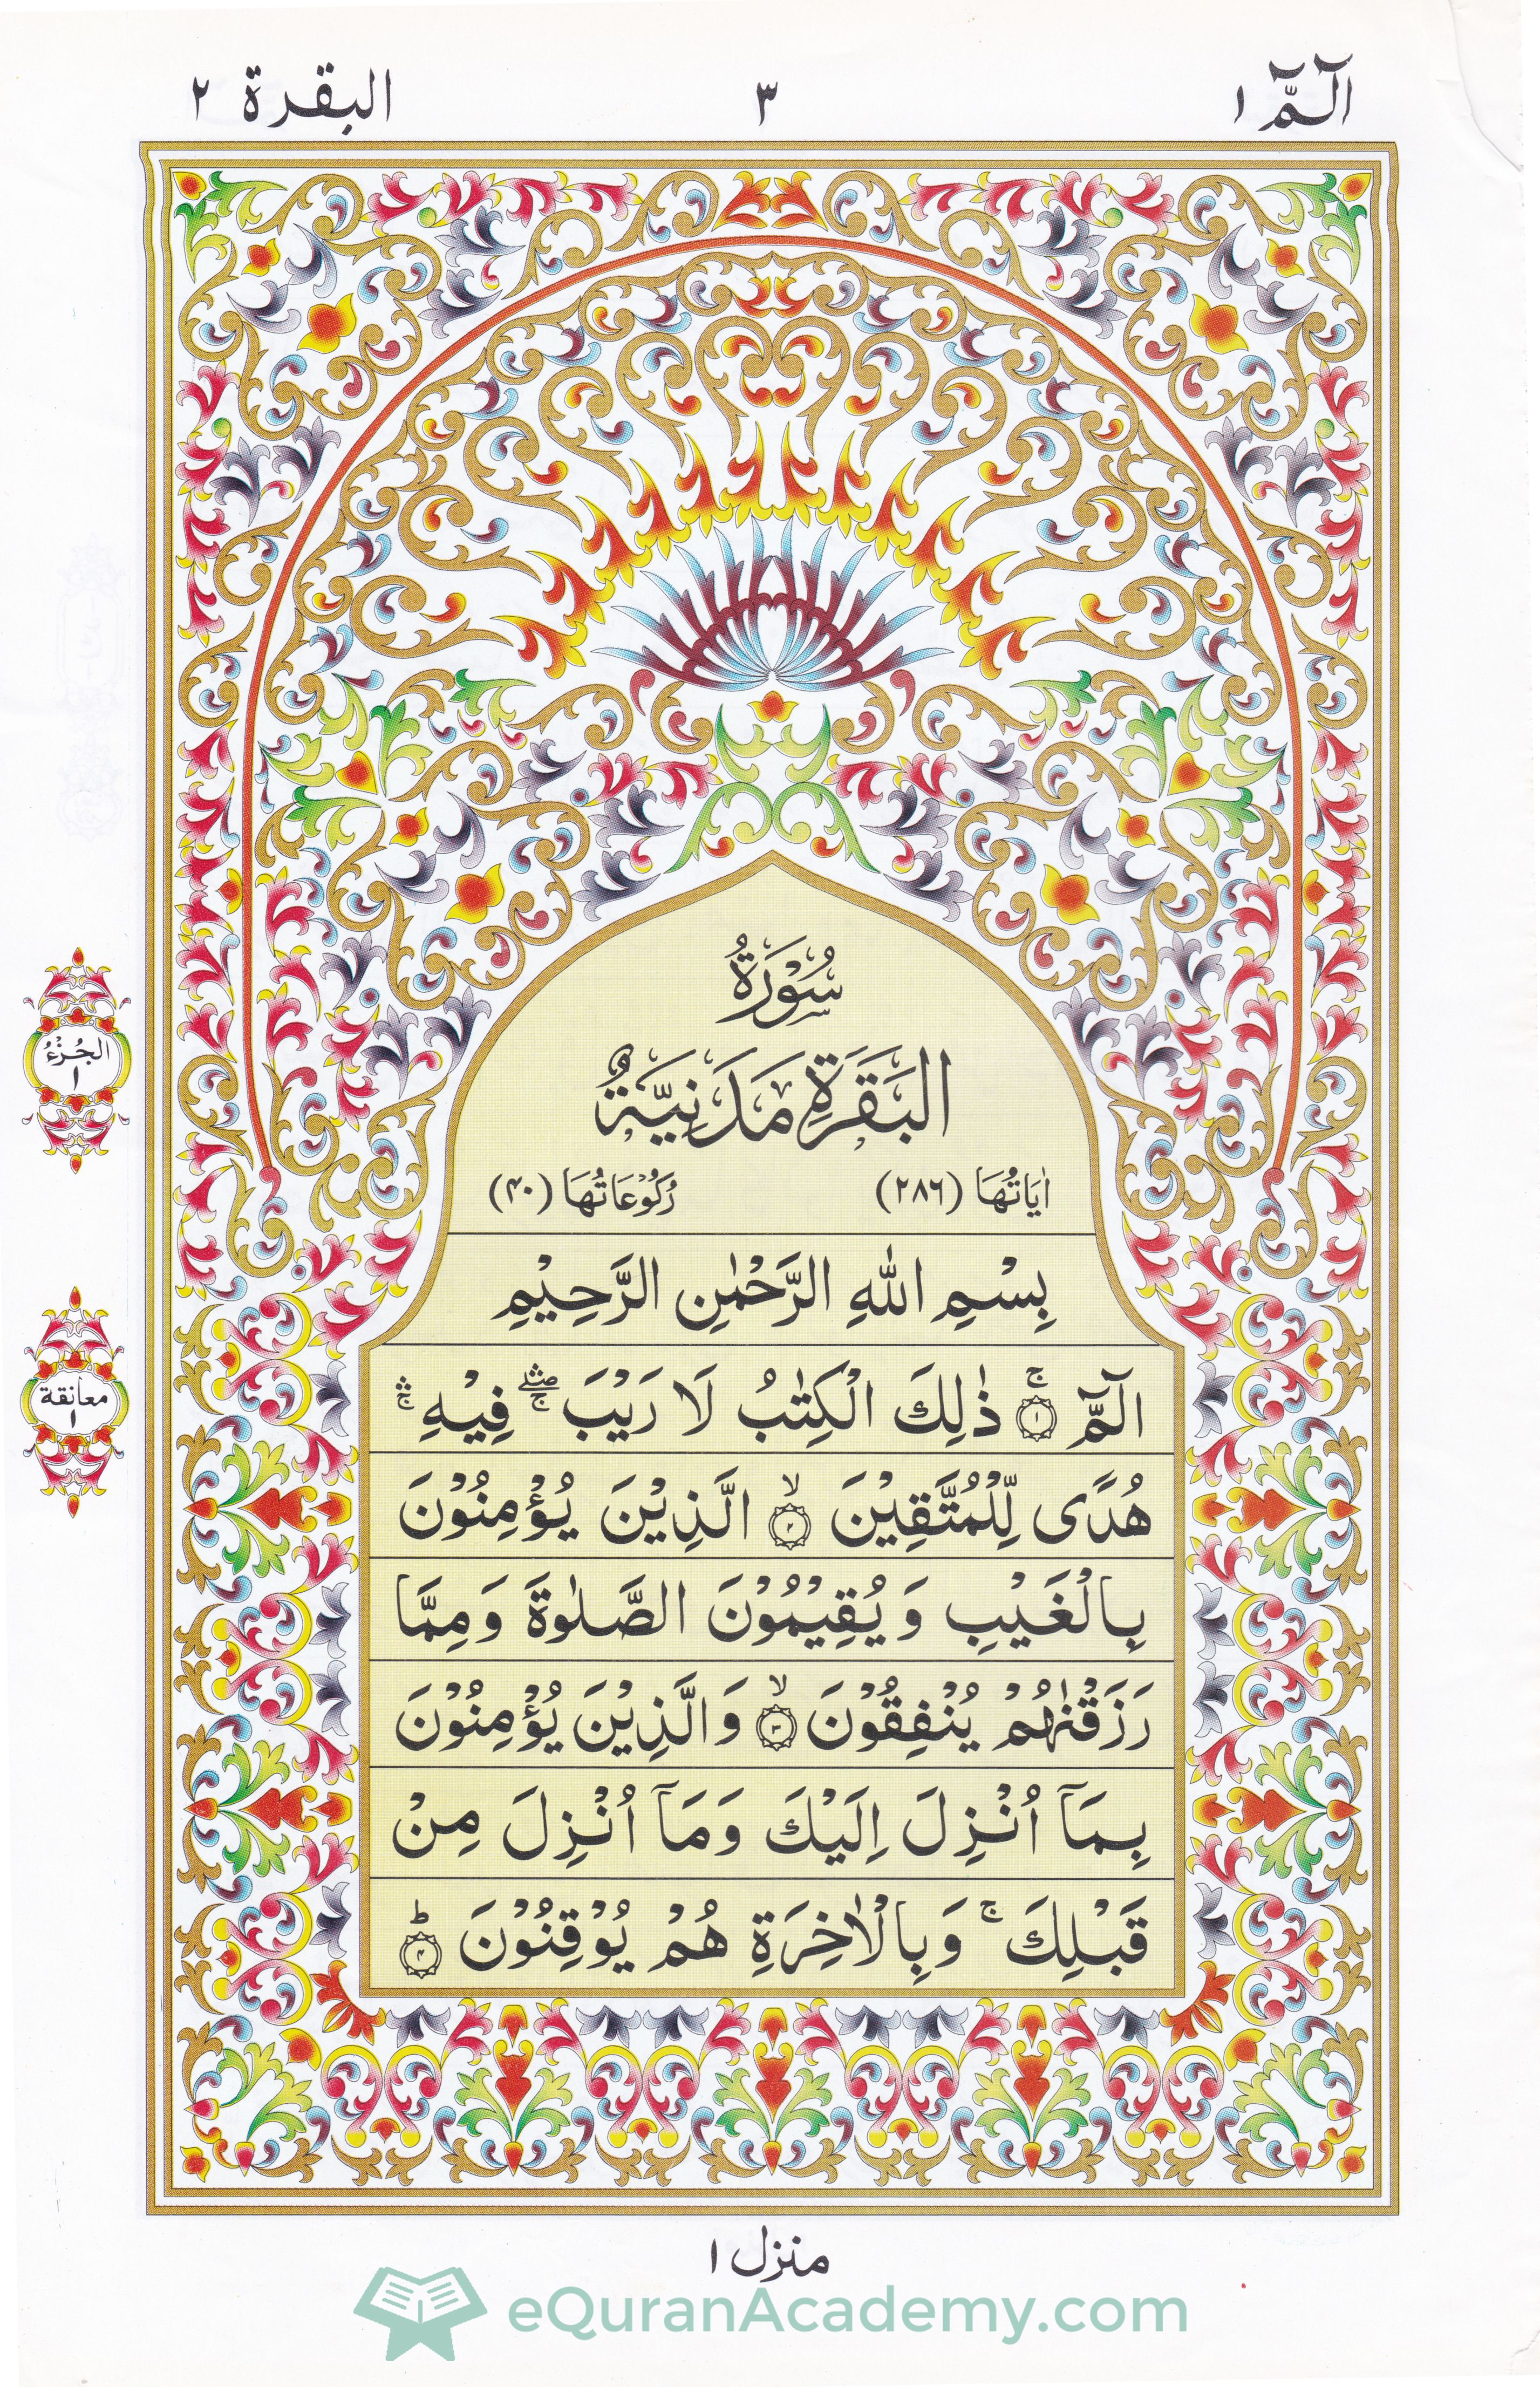 الٓمّٓ ١
٣
البقرة ٢
سُوْرَةُ
البَقَرَةِ مَدَنِيَّةٌ
اٰيَاتُهَا (٢٨٦) رُكُوْعَاتُهَا (۴٠)
بِسْمِ اللّٰهِ الرَّحْمٰنِ الرَّحِيْمِ
الٓمّٓ ۚ‏﴿١﴾ ذٰلِكَ الْكِتٰبُ لَا رَيْبَ ۛۖۚ فِيْهِ ۛۚ
هُدًى لِّلْمُتَّقِيْنَ ۙ‏﴿٢﴾ الَّذِيْنَ يُؤْمِنُوْنَ
بِالْغَيْبِ وَيُقِيْمُوْنَ الصَّلٰوةَ وَمِمَّا
رَزَقْنٰهُمْ يُنْفِقُوْنَ ۙ‏﴿٣﴾ وَالَّذِيْنَ يُؤْمِنُوْنَ
بِمَآ اُنْزِلَ اِلَيْكَ وَمَآ اُنْزِلَ مِنْ
قَبْلِكَ ۚ وَبِالْاٰخِرَةِ هُمْ يُوْقِنُوْنَ ؕ‏﴿۴﴾
الجُزْءُ
١
معانقة
١
منزل ١
eQuranAcademy.com